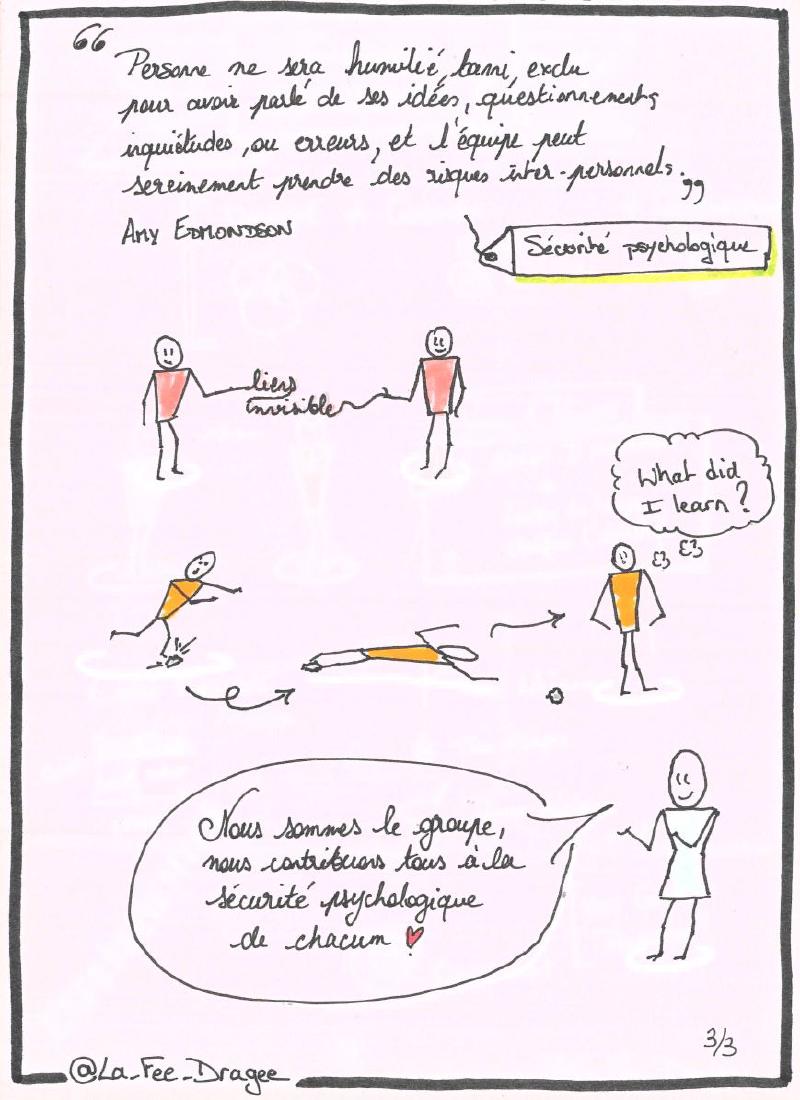 “Personne ne sera humilié, banni, exclu
pour avoir parlé de ses idées, questionnements,
inquiétudes, ou erreurs, et l'équipe peut
sereinement prendre des risques inter-personnels.”
Amy EDMONDSON
Sécurité psychologique
liens
invisible
What did
I learn?
Nous sommes le groupe,
nous contribuons tous à la
sécurité psychologique
de chacun ♥
3/3
@La_Fee_Dragee